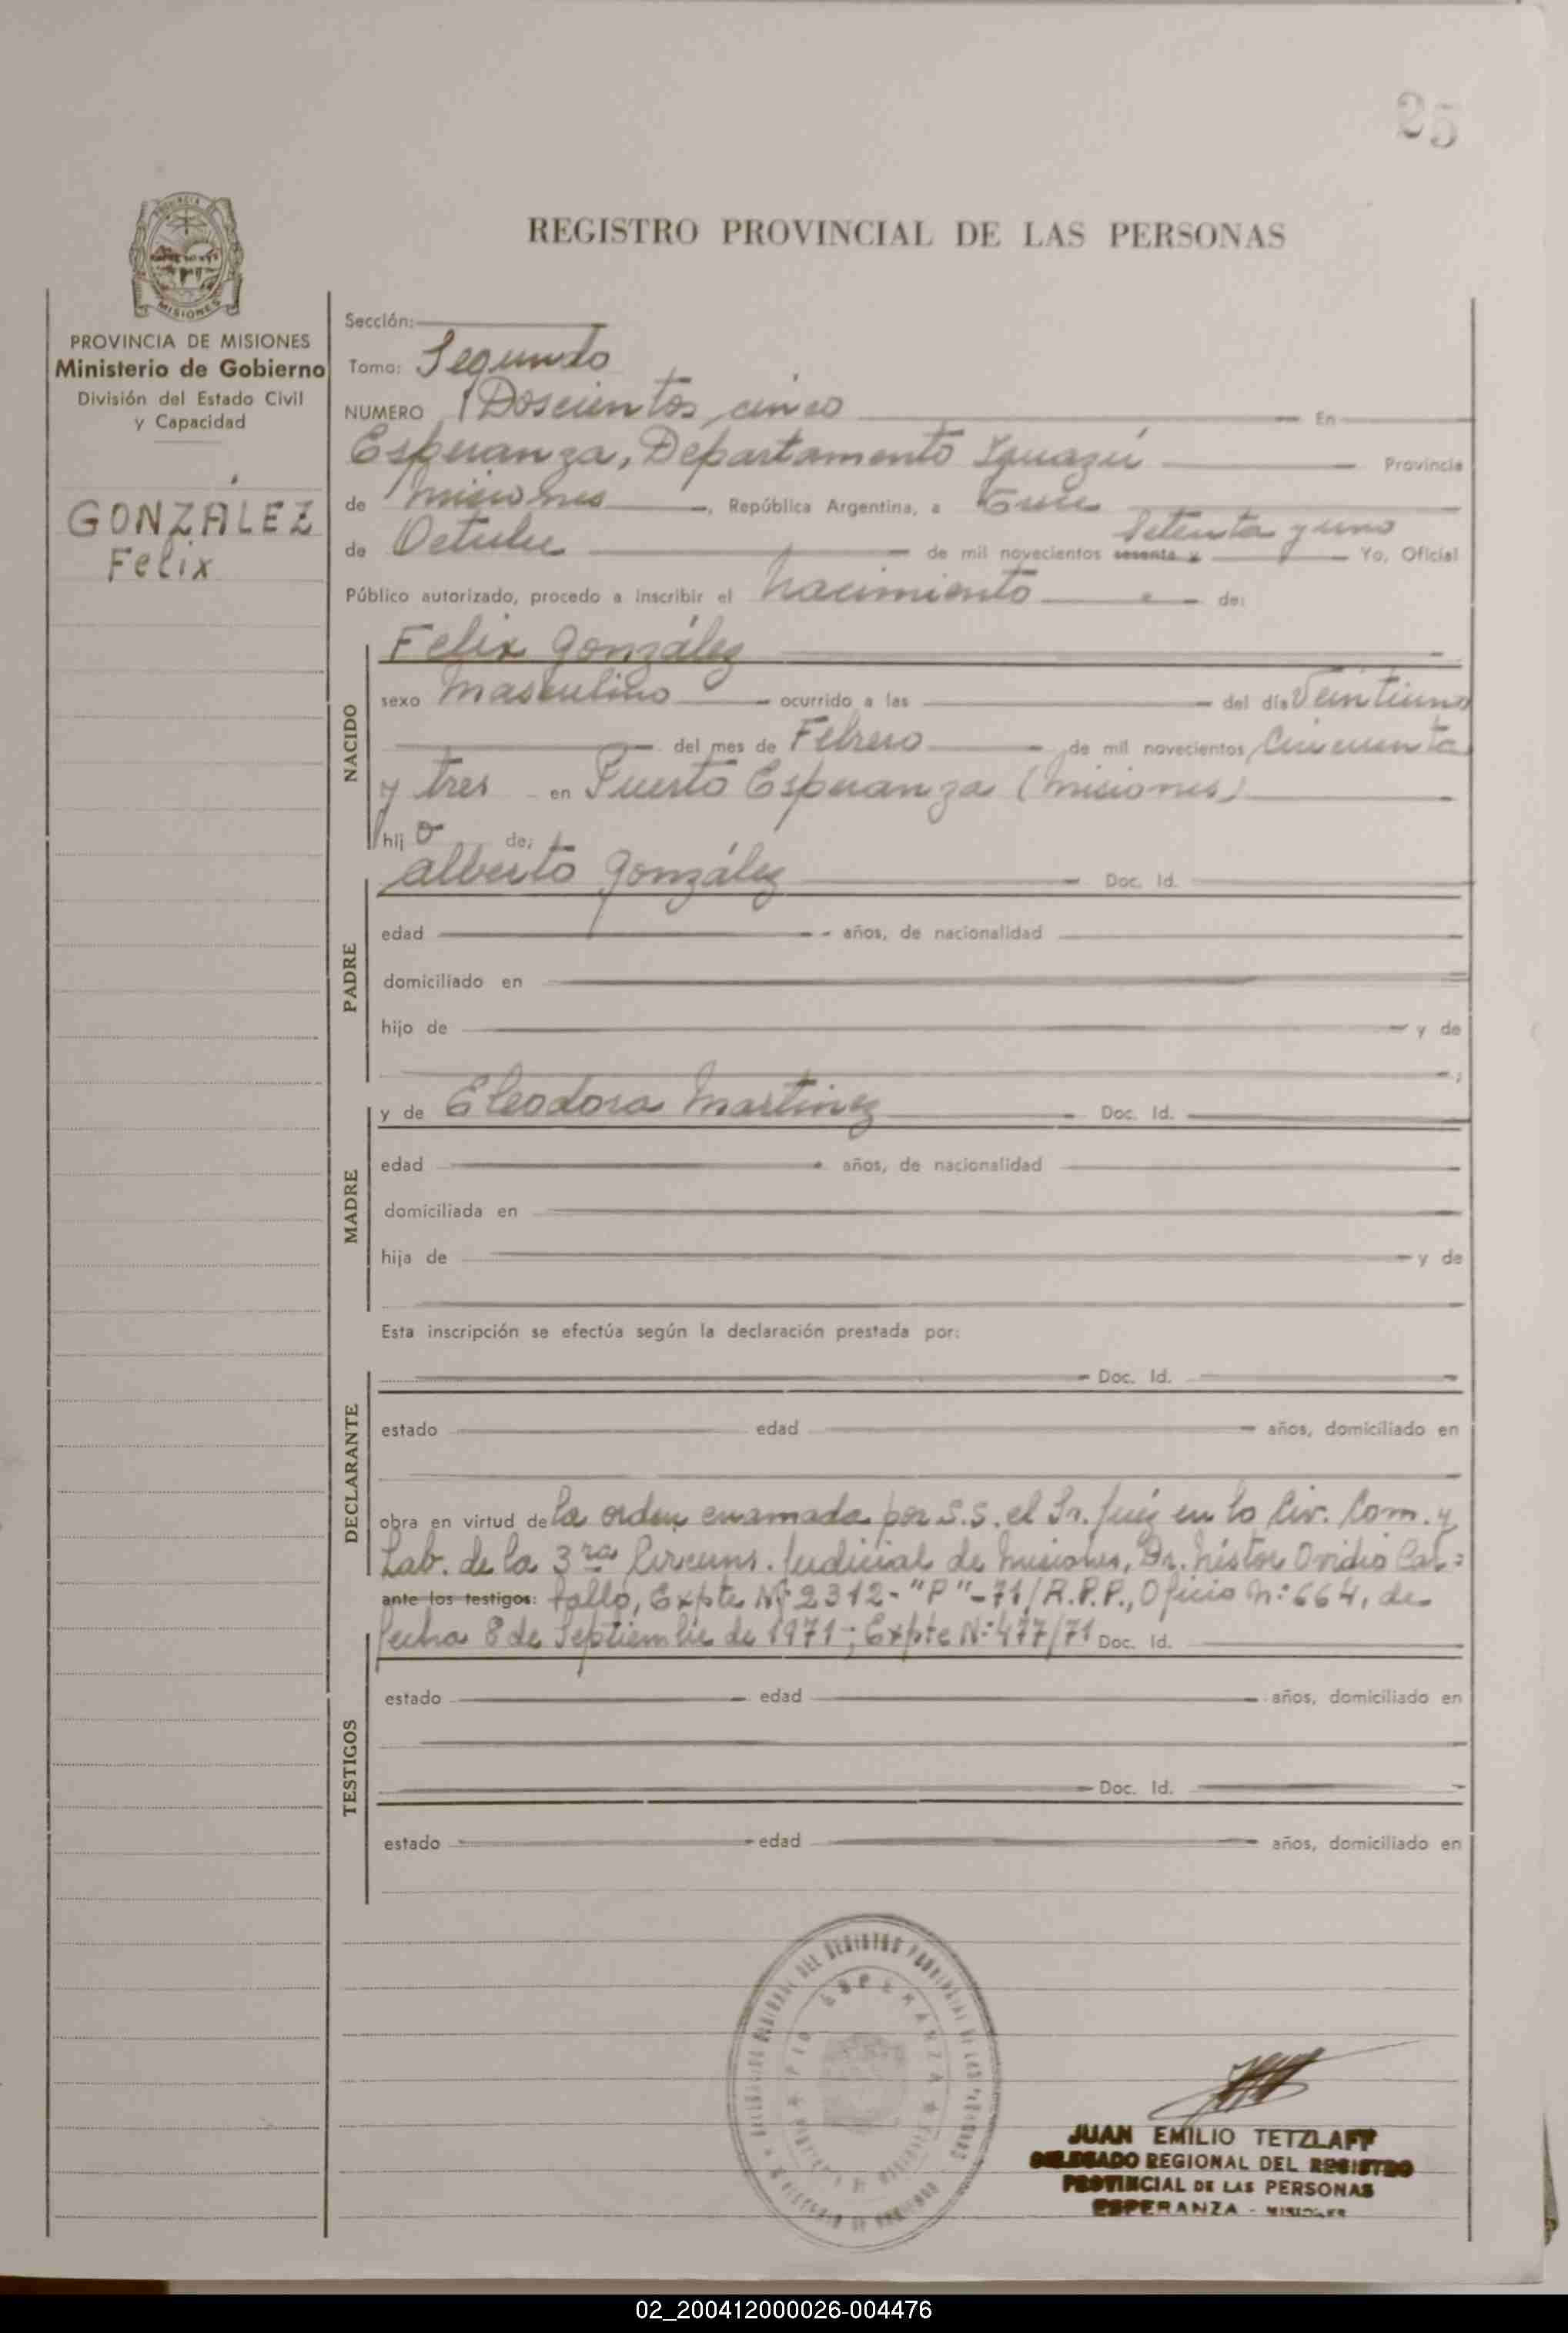 25
REGISTRO PROVINCIAL DE LAS PERSONAS
MISIONES
PROVINCIA DE MISIONES
Ministerio de Gobierno
División del Estado Civil
y Capacidad
GONZÁLEZ
Felix
Sección:
Tomo: Segundo
NUMERO Doscientos cinco En
Esperanza, Departamento Iguazú Provincia
de Misiones, República Argentina, a
de Octubre de mil novecientos sesenta y Setenta y uno Yo, Oficial
Público autorizado, procedo a inscribir el nacimiento de:
NACIDO
Felix González
sexo Masculino ocurrido a las del día Veintiuno
del mes de Febrero de mil novecientos Cincuenta
y tres en Puerto Esperanza (Misiones)
hij o de:
PADRE
Alberto González Doc. Id.
edad años, de nacionalidad
domiciliado en
hijo de y de
MADRE
y de Eleodora Martinez Doc. Id.
edad años, de nacionalidad
domiciliada en
hija de y de
Esta inscripción se efectúa según la declaración prestada por:
DECLARANTE
Doc. Id.
estado edad años, domiciliado en
obra en virtud de la orden enamada por S.S. el Sr. Juéz en lo Civ. Com. y
Lab. de la 3ra Circuns. Judicial de Misiones, Dr. Néstor Ovidio
ante los testigos: Expte Nº 2312-"P"-71/R.P.P., Oficio Nº 664, de
fecha 8 de Septiembre de 1971; Expte Nº 477/71 Doc. Id.
TESTIGOS
estado edad años, domiciliado en
Doc. Id.
estado edad años, domiciliado en
JUAN EMILIO TETZLAFF
DELEGADO REGIONAL DEL REGISTRO
PROVINCIAL DE LAS PERSONAS
ESPERANZA - MISIONES
02_200412000026-004476